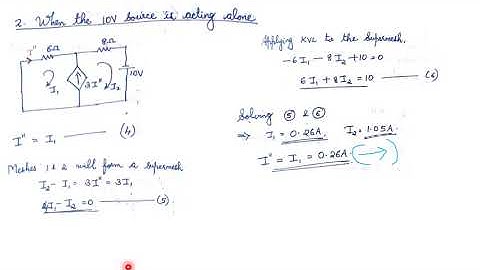 2. When the 10V source is acting alone
I" 6Ω 8Ω
I₁ 3I" I₂ 10V
I" = I₁ (4)
Meshes 1 & 2 will form a supermesh
I₂ - I₁ = 3I" = 3I₁
4I₁ - I₂ = 0 (5)
Applying KVL to the Supermesh,
-6I₁ - 8I₂ + 10 = 0
6I₁ + 8I₂ = 10 (6)
Solving ⑤ & ⑥
⇒ I₁ = 0.26A, I₂ = 1.05A.
I" = I₁ = 0.26A (→)